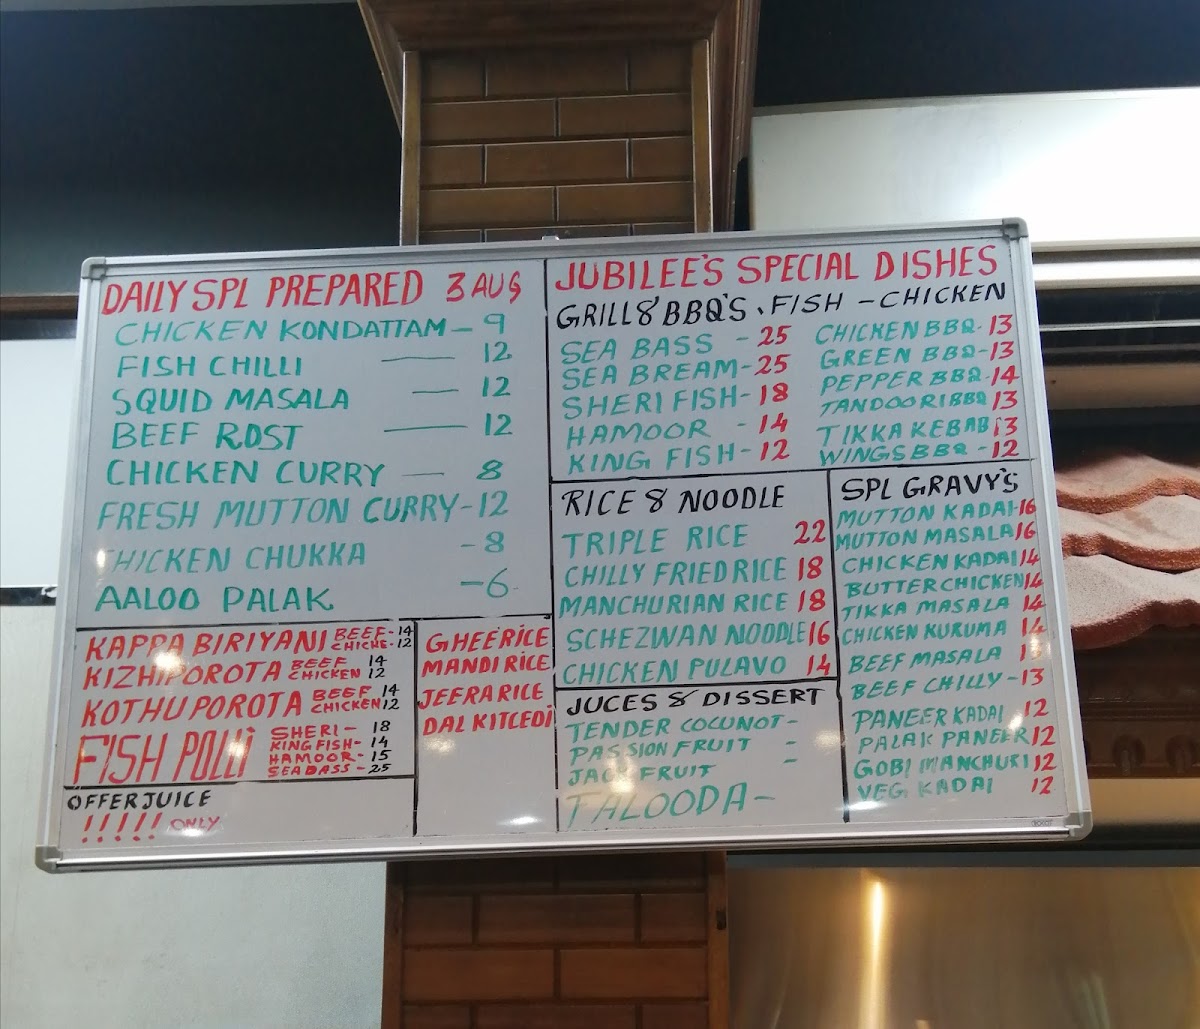 DAILY SPL PREPARED 3 AUG
CHICKEN KONDATTAM - 9
FISH CHILLI — 12
SQUID MASALA — 12
BEEF ROST — 12
CHICKEN CURRY — 8
FRESH MUTTON CURRY - 12
HICKEN CHUKKA - 8
AALOO PALAK - 6
KAPPA BIRIYANI BEEF - 14
CHICKE - 12
KIZHIPOROTA BEEF 14
CHICKEN 12
KOTHUPOROTA BEEF 14
CHICKEN 12
FISH POLLI SHERI - 18
KING FISH - 14
HAMOOR - 15
SEADASS - 25
OFFER JUICE
!!!!! ONLY
GHEERICE
MANDI RICE
JEERA RICE
DAL KITCEDI
JUBILEE'S SPECIAL DISHES
GRILL & BBQ'S . FISH - CHICKEN
SEA BASS - 25
SEA BREAM - 25
SHERI FISH - 18
HAMOOR - 14
KING FISH - 12
CHICKEN BBQ - 13
GREEN BBQ - 13
PEPPER BBQ - 14
TANDOORI BBQ 13
TIKKA KEBAB 13
WINGS BBQ - 12
RICE & NOODLE
TRIPLE RICE 22
CHILLY FRIED RICE 18
MANCHURIAN RICE 18
SCHEZWAN NOODLE 16
CHICKEN PULAVO 14
JUCES & DISSERT
TENDER COCUNOT -
PASSION FRUIT -
JACK FRUIT -
TALOODA -
SPL GRAVY'S
MUTTON KADAI - 16
MUTTON MASALA 16
CHICKEN KADAI 14
BUTTER CHICKEN 14
TIKKA MASALA 14
CHICKEN KURUMA 14
BEEF MASALA
BEEF CHILLY - 13
PANEER KADAI 12
PALAK PANEER 12
GOBI MANCHURI 12
VEG KADAI 12